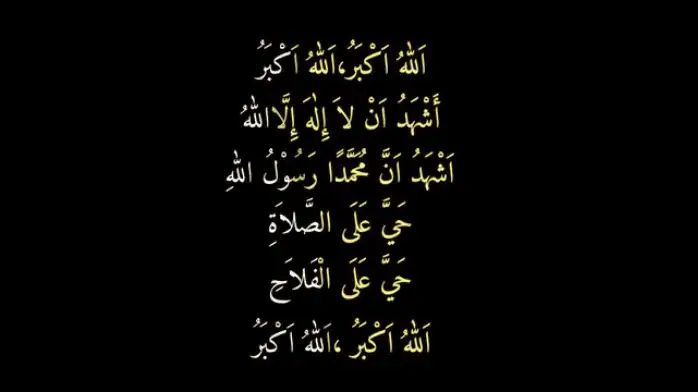 اَللهُ اَكْبَرُ،اَللهُ اَكْبَرُ
أَشْهَدُ اَنْ لاَ إِلٰهَ إِلَّااللهُ
اَشْهَدُ اَنَّ مُحَمَّدًا رَسُوْلُ اللهِ
حَيَّ عَلَى الصَّلاَةِ
حَيَّ عَلَى الْفَلاَحِ
اَللهُ اَكْبَرُ ،اَللهُ اَكْبَرُ